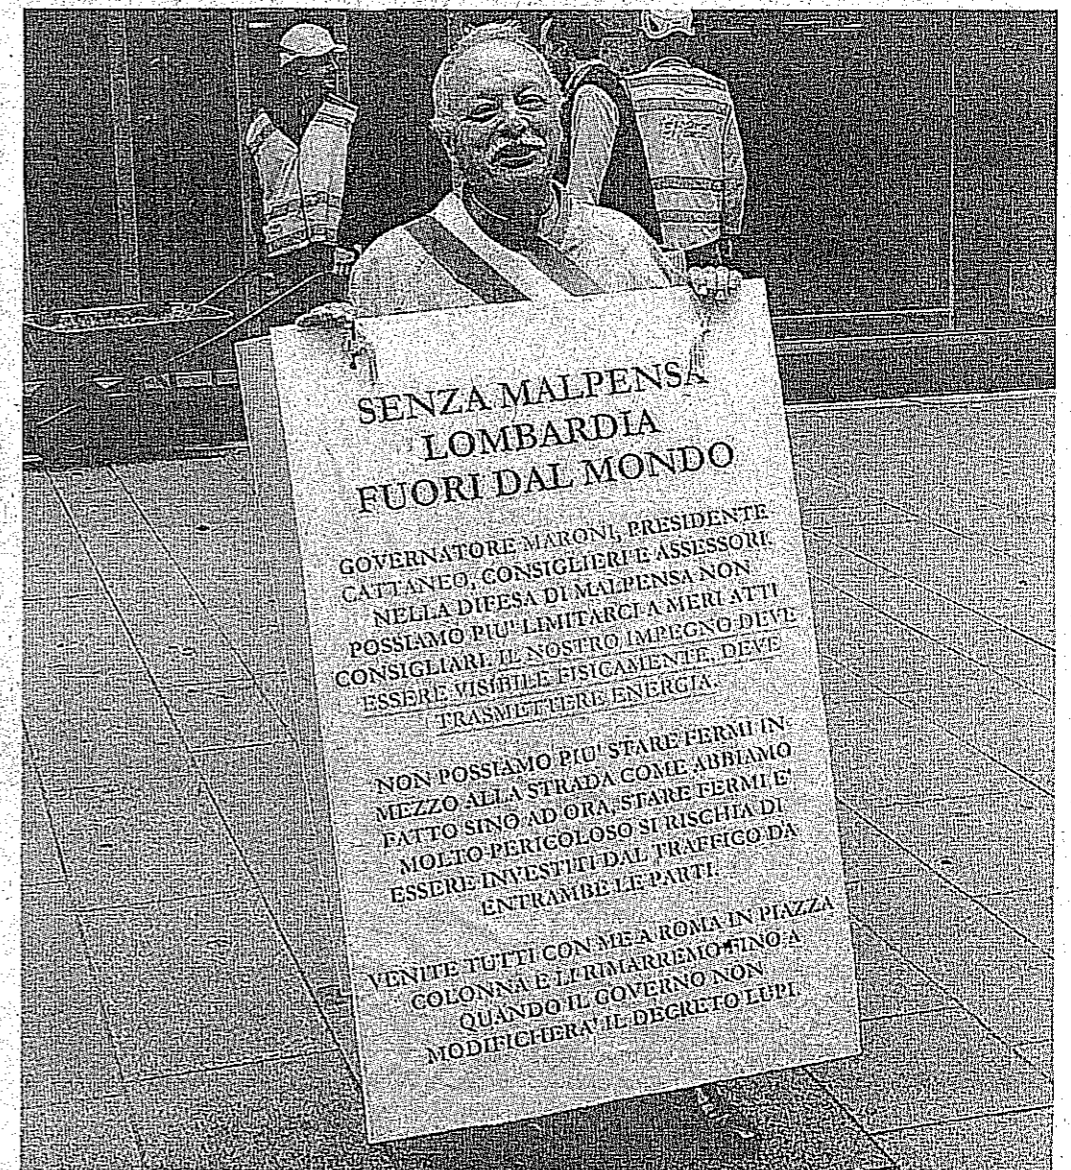 SENZA MALPENSA
LOMBARDIA
FUORI DAL MONDO
GOVERNATORE MARONI, PRESIDENTE
CATTANEO, CONSIGLIERI E ASSESSORI
NELLA DIFESA DI MALPENSA NON
POSSIAMO PIU' LIMITARCI A MERI ATTI
CONSIGLIARI. IL NOSTRO IMPEGNO DEVE
ESSERE VISIBILE FISICAMENTE, DEVE
TRASMETTERE ENERGIA.
NON POSSIAMO PIU' STARE FERMI IN
MEZZO ALLA STRADA COME ABBIAMO
FATTO SINO AD ORA, STARE FERMI E'
MOLTO PERICOLOSO SI RISCHIA DI
ESSERE INVESTITI DAL TRAFFICO DA
ENTRAMBE LE PARTI.
VENITE TUTTI CON ME A ROMA IN PIAZZA
COLONNA E LI RIMARREMO FINO A
QUANDO IL GOVERNO NON
MODIFICHERA' IL DECRETO LUPI